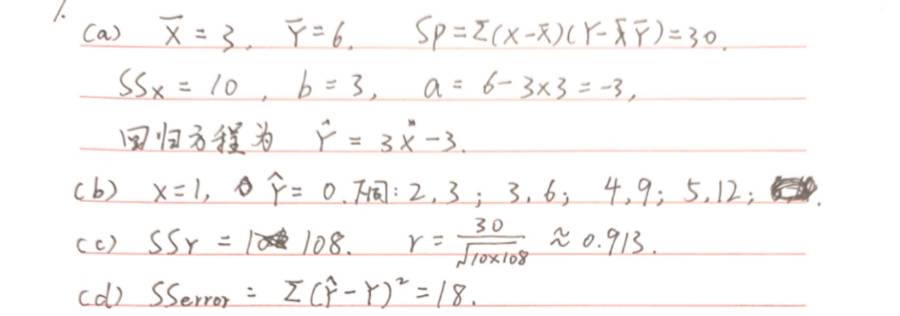 1.
(a) X̄ = 3, Ȳ = 6. Sp = Σ(X-X̄)(Y-Ȳ) = 30.
SSx = 10, b = 3, a = 6-3×3 = -3,
回归方程为 Ŷ = 3X-3.
(b) x=1, Ŷ = 0. 下同: 2,3; 3,6; 4,9; 5,12;
(c) SSY = 108. r = 30/√10×108 ≈ 0.913.
(d) SSerror = Σ(Ŷ-Y)² = 18.